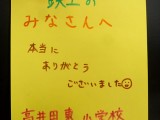 みなさんへ
本当に
ありがとう
ございました
高井田東小学校